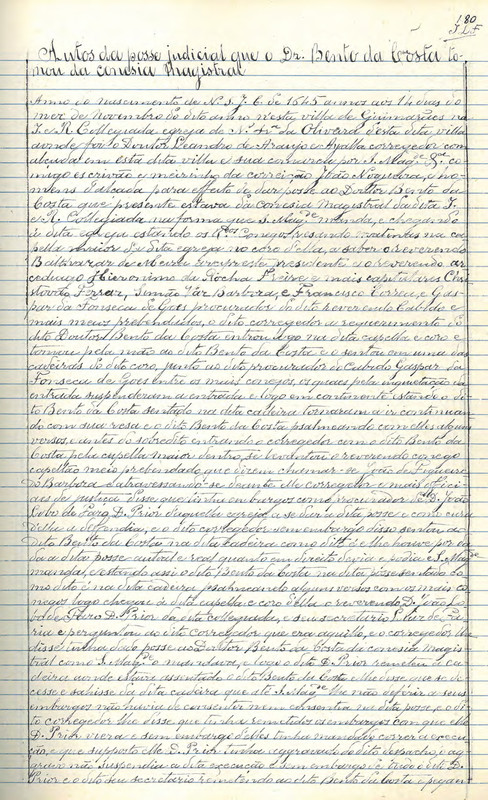 180
J.L.F.
Autos da posse judicial que o Dr. Bento da Costa to-
mou da conesia Magistral
Anno do nascimento de N. S. J. C. de 1645 annos aos 14 dias do
mez de Novembro do dito anno n'esta villa de Guimarães na
I. e R. Collegiada egreja de N. Snra. da Oliveira d'esta dita villa
aonde foi o Doutor Leandro de Araujo e Ayalla corregedor com
alçada em esta dita villa e sua comarca por S. Mage. &ª co-
migo escrivão e meirinho da correição João Nogueira, e ho-
mens d'alçada para effeito de dar posse ao Doutor Bento da
Costa que presente estava da conesia magistral da dita I.
e R. Collegiada na forma que S. Magde. manda, e chegando
á dita egreja estando os Rdos. conegos resando matinas na ca-
pella maior da dita egreja no coro d'ella, a saber o reverendo
Balthazar de presidente e o reverendo ar-
cediago Jheronimo da Rocha Freire e mais capitulares Chris-
tovão Ferraz, Simão Vaz Barboza, e Francisco Correa, e Gas-
par da Fonseca de Goes procurador do dito reverendo Cabido e
mais meios prebendados, o dito corregedor a requerimento do
dito Doutor Bento da Costa entrou logo na dita capella e coro e
tomou pela mão ao dito Bento da Costa e o sentou em uma das
cadeiras do dito coro, junto ao dito procurador do Cabido Gaspar da
Fonseca de Goes entre os mais conegos, os quaes pela inquietação da
entrada suspenderam a entoada e logo em continente estando o di-
to Bento da Costa sentado na dita cadeira tornaram a ir continuan-
do com sua resa e o dito Bento da Costa psalmeando com elles alguns
versos, e antes do sobredito entrando o corregedor com o dito Bento da
Costa pela capella maior dentro, se levantou o reverendo conego
capellão meio prebendado que dizem chamar-se João de Figueire-
do Barbora e atravessando-se deante d'elle corregedor e mais offici-
aes da justiça disse que tinha embargos como procurador do João
Lobo de Faro D. Prior d'aquella egreja, a se dar a dita posse e com
elle a defendia, e o dito corregedor sem embargo disso sentou ao
dito Bento da Costa na dita cadeira como dito é e lhe houve por da-
da a dita posse autual e real quanto em direito devia e podia e S. Magde.
manda, e estando assi o dito Bento da Costa na dita posse sentado co-
mo dito é na dita cadeira psalmeando alguns versos com os mais co-
negos logo chegou á dita capella e coro d'ella o reverendo D. João Lo-
bo de Faro D. Prior da dita collegiada, e seu secretario Luiz de Fa-
ria e perguntou ao dito corregedor que era aquillo, e o corregedor lhe
disse tinha dado posse ao Doutor Bento da Costa da conesia magis-
tral como S. Magde. o mandava, e logo o dito D. Prior remeteu á ca-
deira aonde estava assentado o dito Bento da Costa e lhe disse que se de-
cesse e sahisse da dita cadeira que até S. Magde. lhe não deferir a seus
embargos não havia de consentir nem consentia na dita posse, e o di-
to corregedor lhe disse que tinha remetido os embargos com que elle
D. Prior viera e sem embargo d'elles tinha mandado correr a execu-
ção, e que supposto elle D. Prior tinha aggravado do dito despacho, o ag-
gravo não suspendia a dita execução e sem embargo de tudo o dito D.
Prior e o dito seu secretario remetendo ao dito Bento da Costa e pegan-